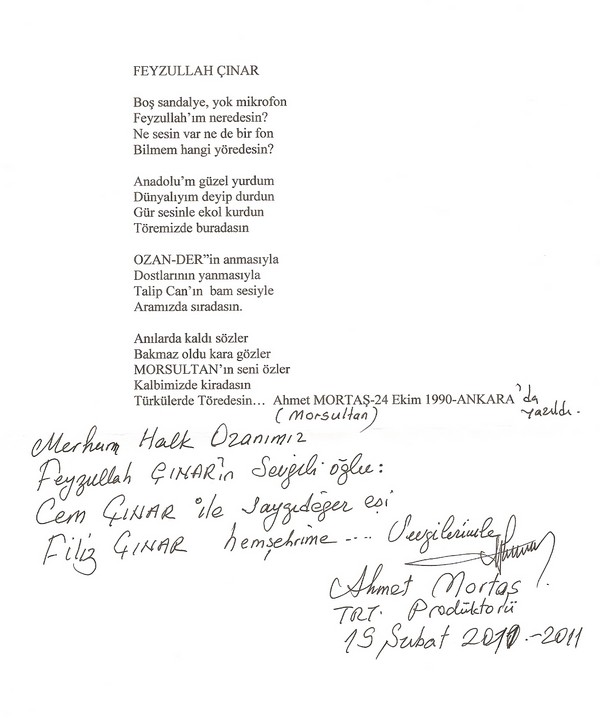 FEYZULLAH ÇINAR
Boş sandalye, yok mikrofon
Feyzullah'ım neredesin?
Ne sesin var ne de bir fon
Bilmem hangi yöredesin?
Anadolu'm güzel yurdum
Dünyalıyım deyip durdun
Gür sesinle ekol kurdun
Töremizde buradasın
OZAN-DER"in anmasıyla
Dostlarının yanmasıyla
Talip Can'ın bam sesiyle
Aramızda sıradasın.
Anılarda kaldı sözler
Bakmaz oldu kara gözler
MORSULTAN'ın seni özler
Kalbimizde kiradasın
Türkülerde Töredesin... Ahmet MORTAŞ-24 Ekim 1990-ANKARA 'da yazıldı.
(Morsultan)
Merhum Halk Ozanımız
Feyzullah ÇINAR'ın Sevgili oğlu:
Cem ÇINAR ile saygıdeğer eşi
Filiz ÇINAR hemşehrime .... Sevgilerimle
Ahmet Mortaş
TRT. Prodüktörü
19 Şubat -2011